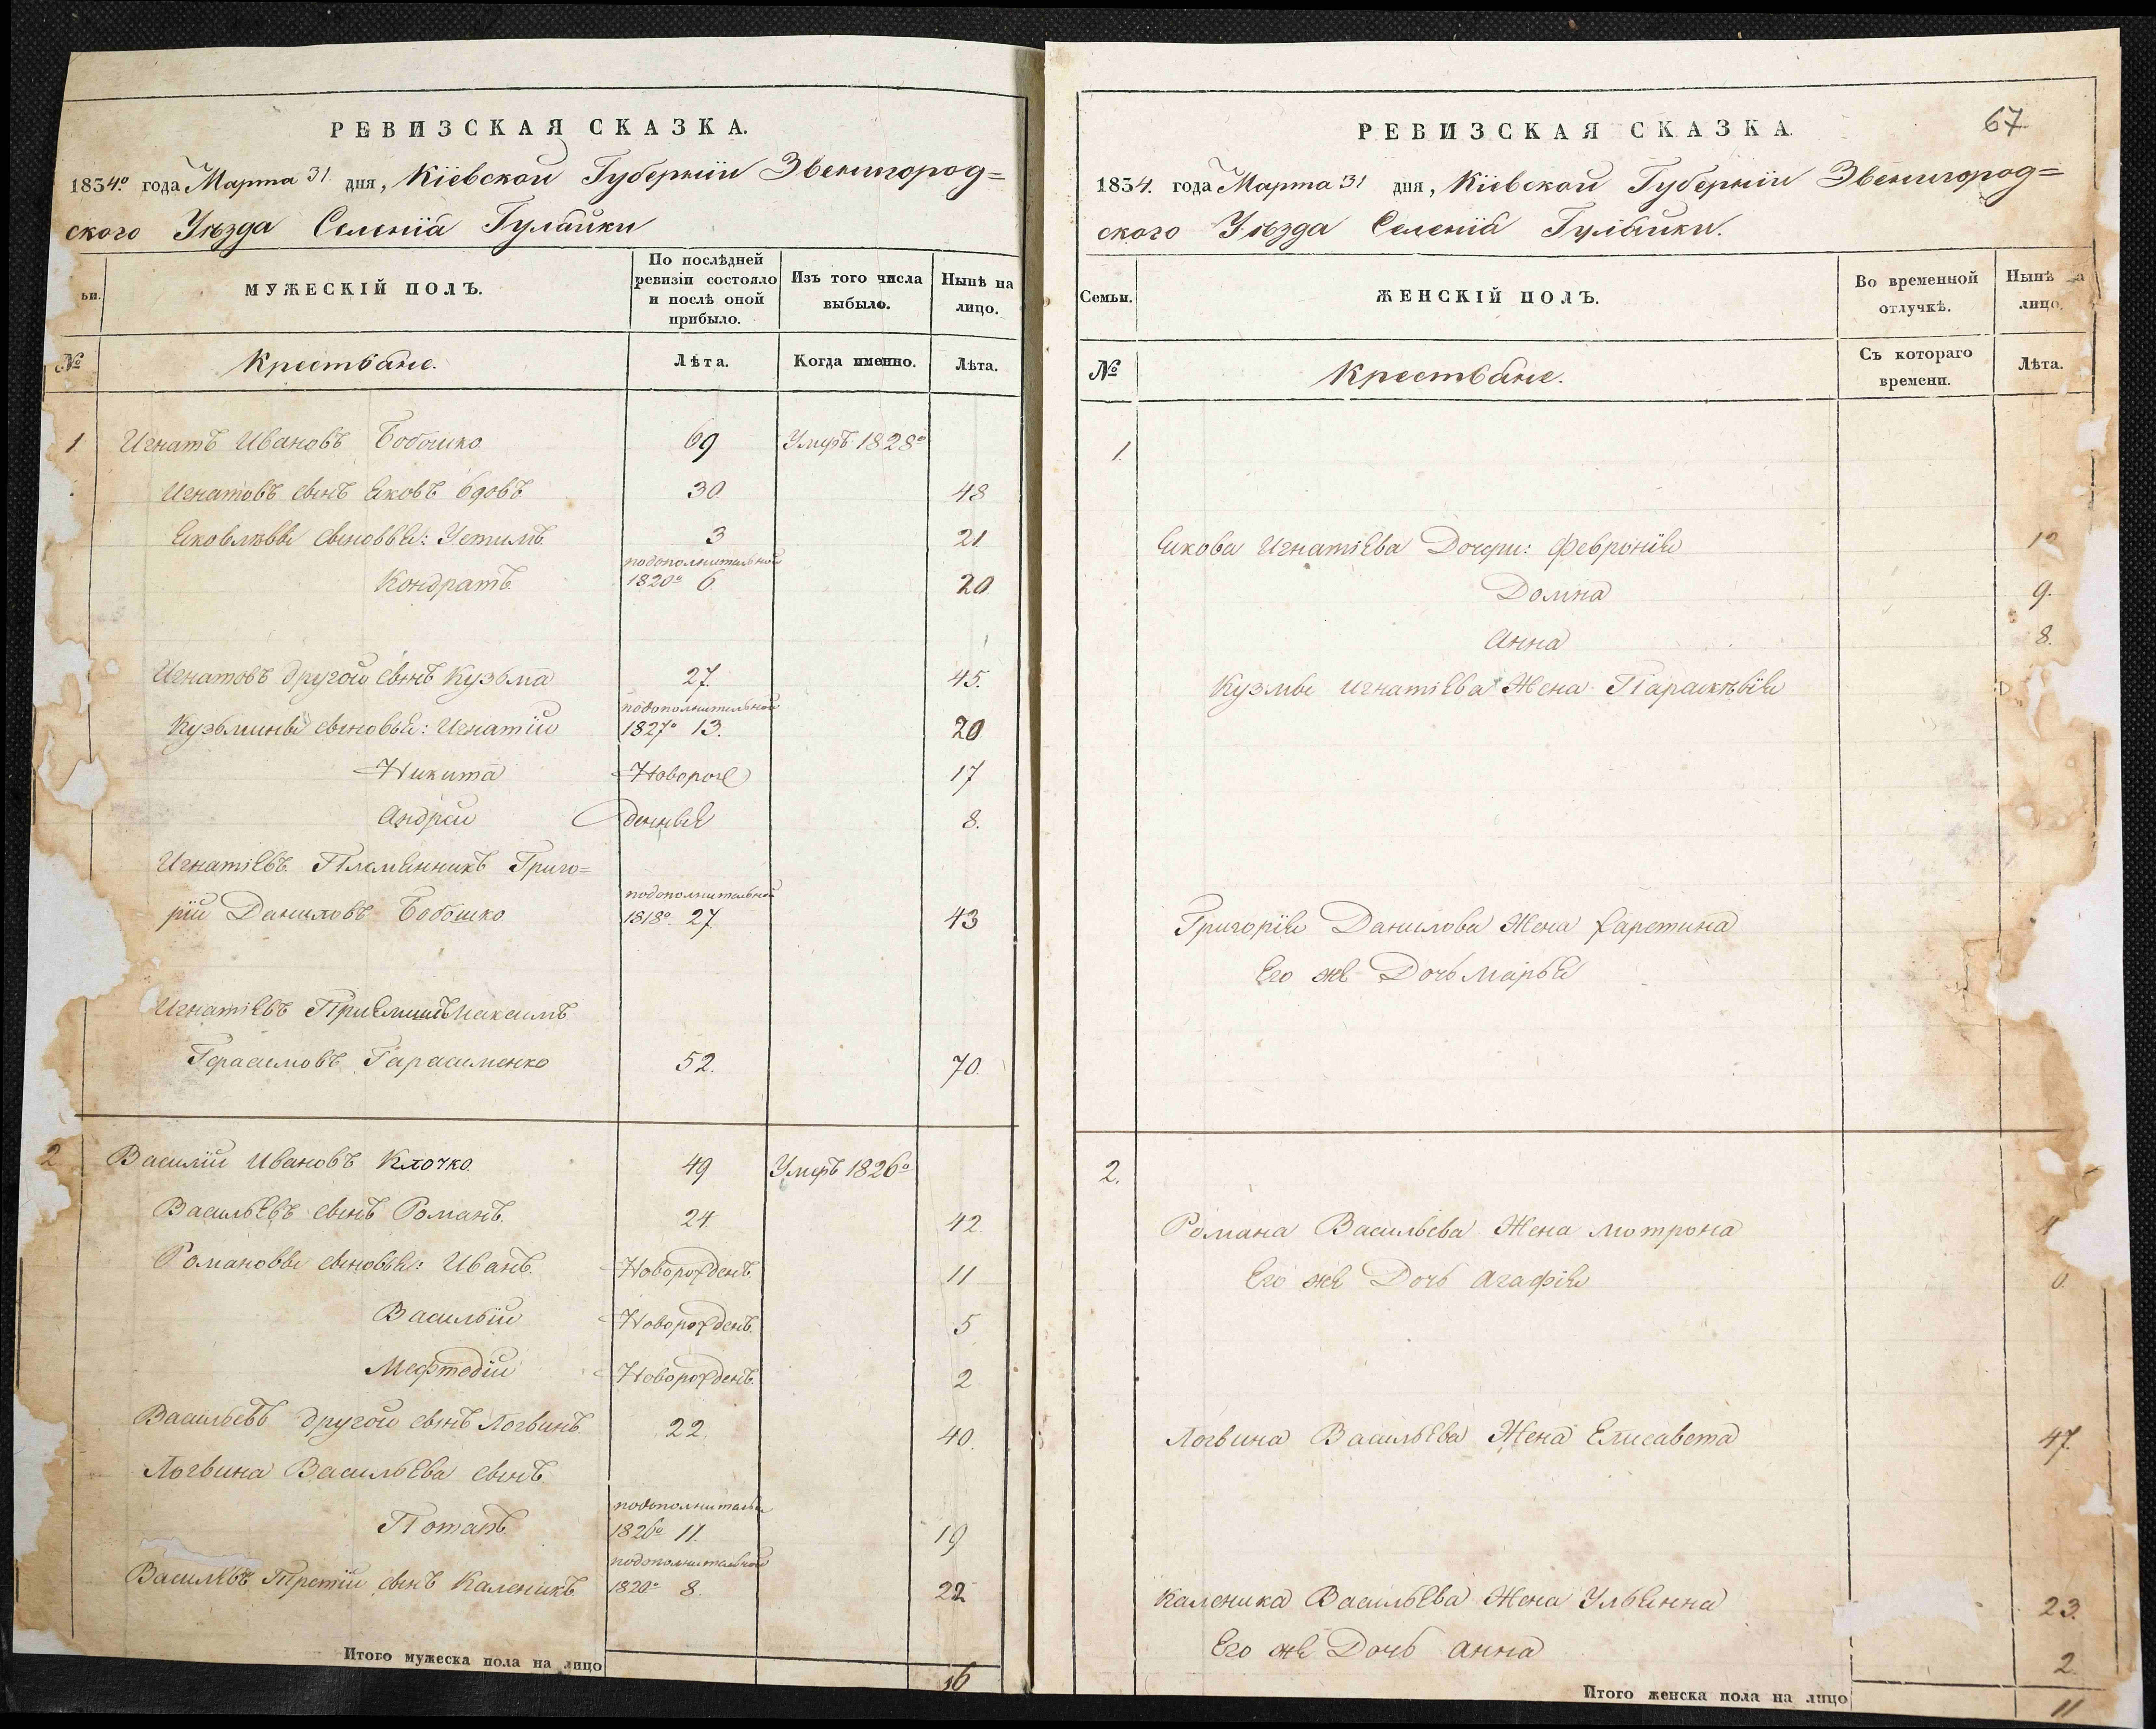 РЕВИЗСКАЯ СКАЗКА.
1834го года Марта 31 дня, Кіевской Губерніи Звенигород=
ского Уѣзда Селенія Гулайки
ьи.
МУЖЕСКІЙ ПОЛЪ.
По послѣдней
ревизіи состояло
и послѣ оной
прибыло.
Изъ того числа
выбыло.
Нынѣ на
лицо.
№
Крестьяне.
Лѣта.
Когда именно.
Лѣта.
1 Игнатъ Ивановъ Бобошко 69 Умеръ 1828го
Игнатовъ сынъ Яковъ вдовъ 30 48
Яковлевы сыновья: Устимъ 3 21
подополнительной
Кондратъ 1820го 6 20
Игнатовъ другой сынъ Кузьма 27. 45.
подополнительной
Кузьмины сыновья: Игнатій 1827го 13. 20
Никита Новорож 17
Андрей денные 8.
Игнатіевъ Племянникъ Григо=
подополнительной
рій Даниловъ Бобошко 1818го 27 43
Игнатіевъ Пріемышъ Максимъ
Герасимовъ Гарасименко 52. 70
2 Василій Ивановъ Клочко 49 Умеръ 1826го
Васильевъ сынъ Романъ. 24 42
Романовы сыновья: Иванъ. Новорожденъ 11
Василій Новорожденъ. 5
Мефтодій Новорожденъ. 2
Васильевъ другой сынъ Логвинъ 22 40.
Логвина Васильева сынъ
подополнитель
Потапъ 1826го 11. 19
подополнительной
Васильевъ Третій сынъ Каленикъ 1820го 8. 22
Итого мужеска пола на лицо 16
67
РЕВИЗСКАЯ СКАЗКА
1834. года Марта 31 дня, Кіевской Губерніи Звенигород=
ского Уѣзда Селенія Гулайки.
Семьи.
ЖЕНСКІЙ ПОЛЪ.
Во временной
отлучкѣ.
Нынѣ на
лицо.
№
Крестьяне.
Съ котораго
времени.
Лѣта.
1.
Якова Игнатіева Дочери: Февронія
Домна 9.
Анна 8.
Кузмы Игнатіева Жена Параскѣвія
Григорія Данилова Жена Харетина
Его же Дочь Марья
2.
Романа Васильева Жена Мотрона
Его же Дочь Агафія
Логвина Васильева Жена Елисавета 47.
Каленика Васильева Жена Ульянна 23.
Его же Дочь Анна 2
Итого женска пола на лицо 11